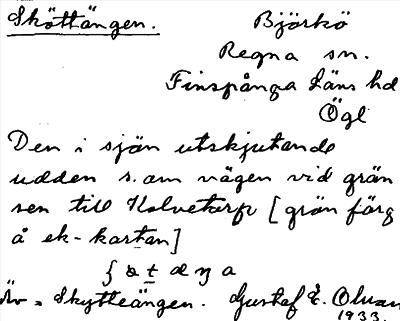 Sköttängen. Björkö
Regna sn.
Finspånga Läns hd
Ögl
Den i sjön utskjutande
udden s.om vägen vid grän
sen till Kolvetorp [grön färg
å ek-kartan]
Äv = Skytteängen. Gustaf E. Olsson
1933.